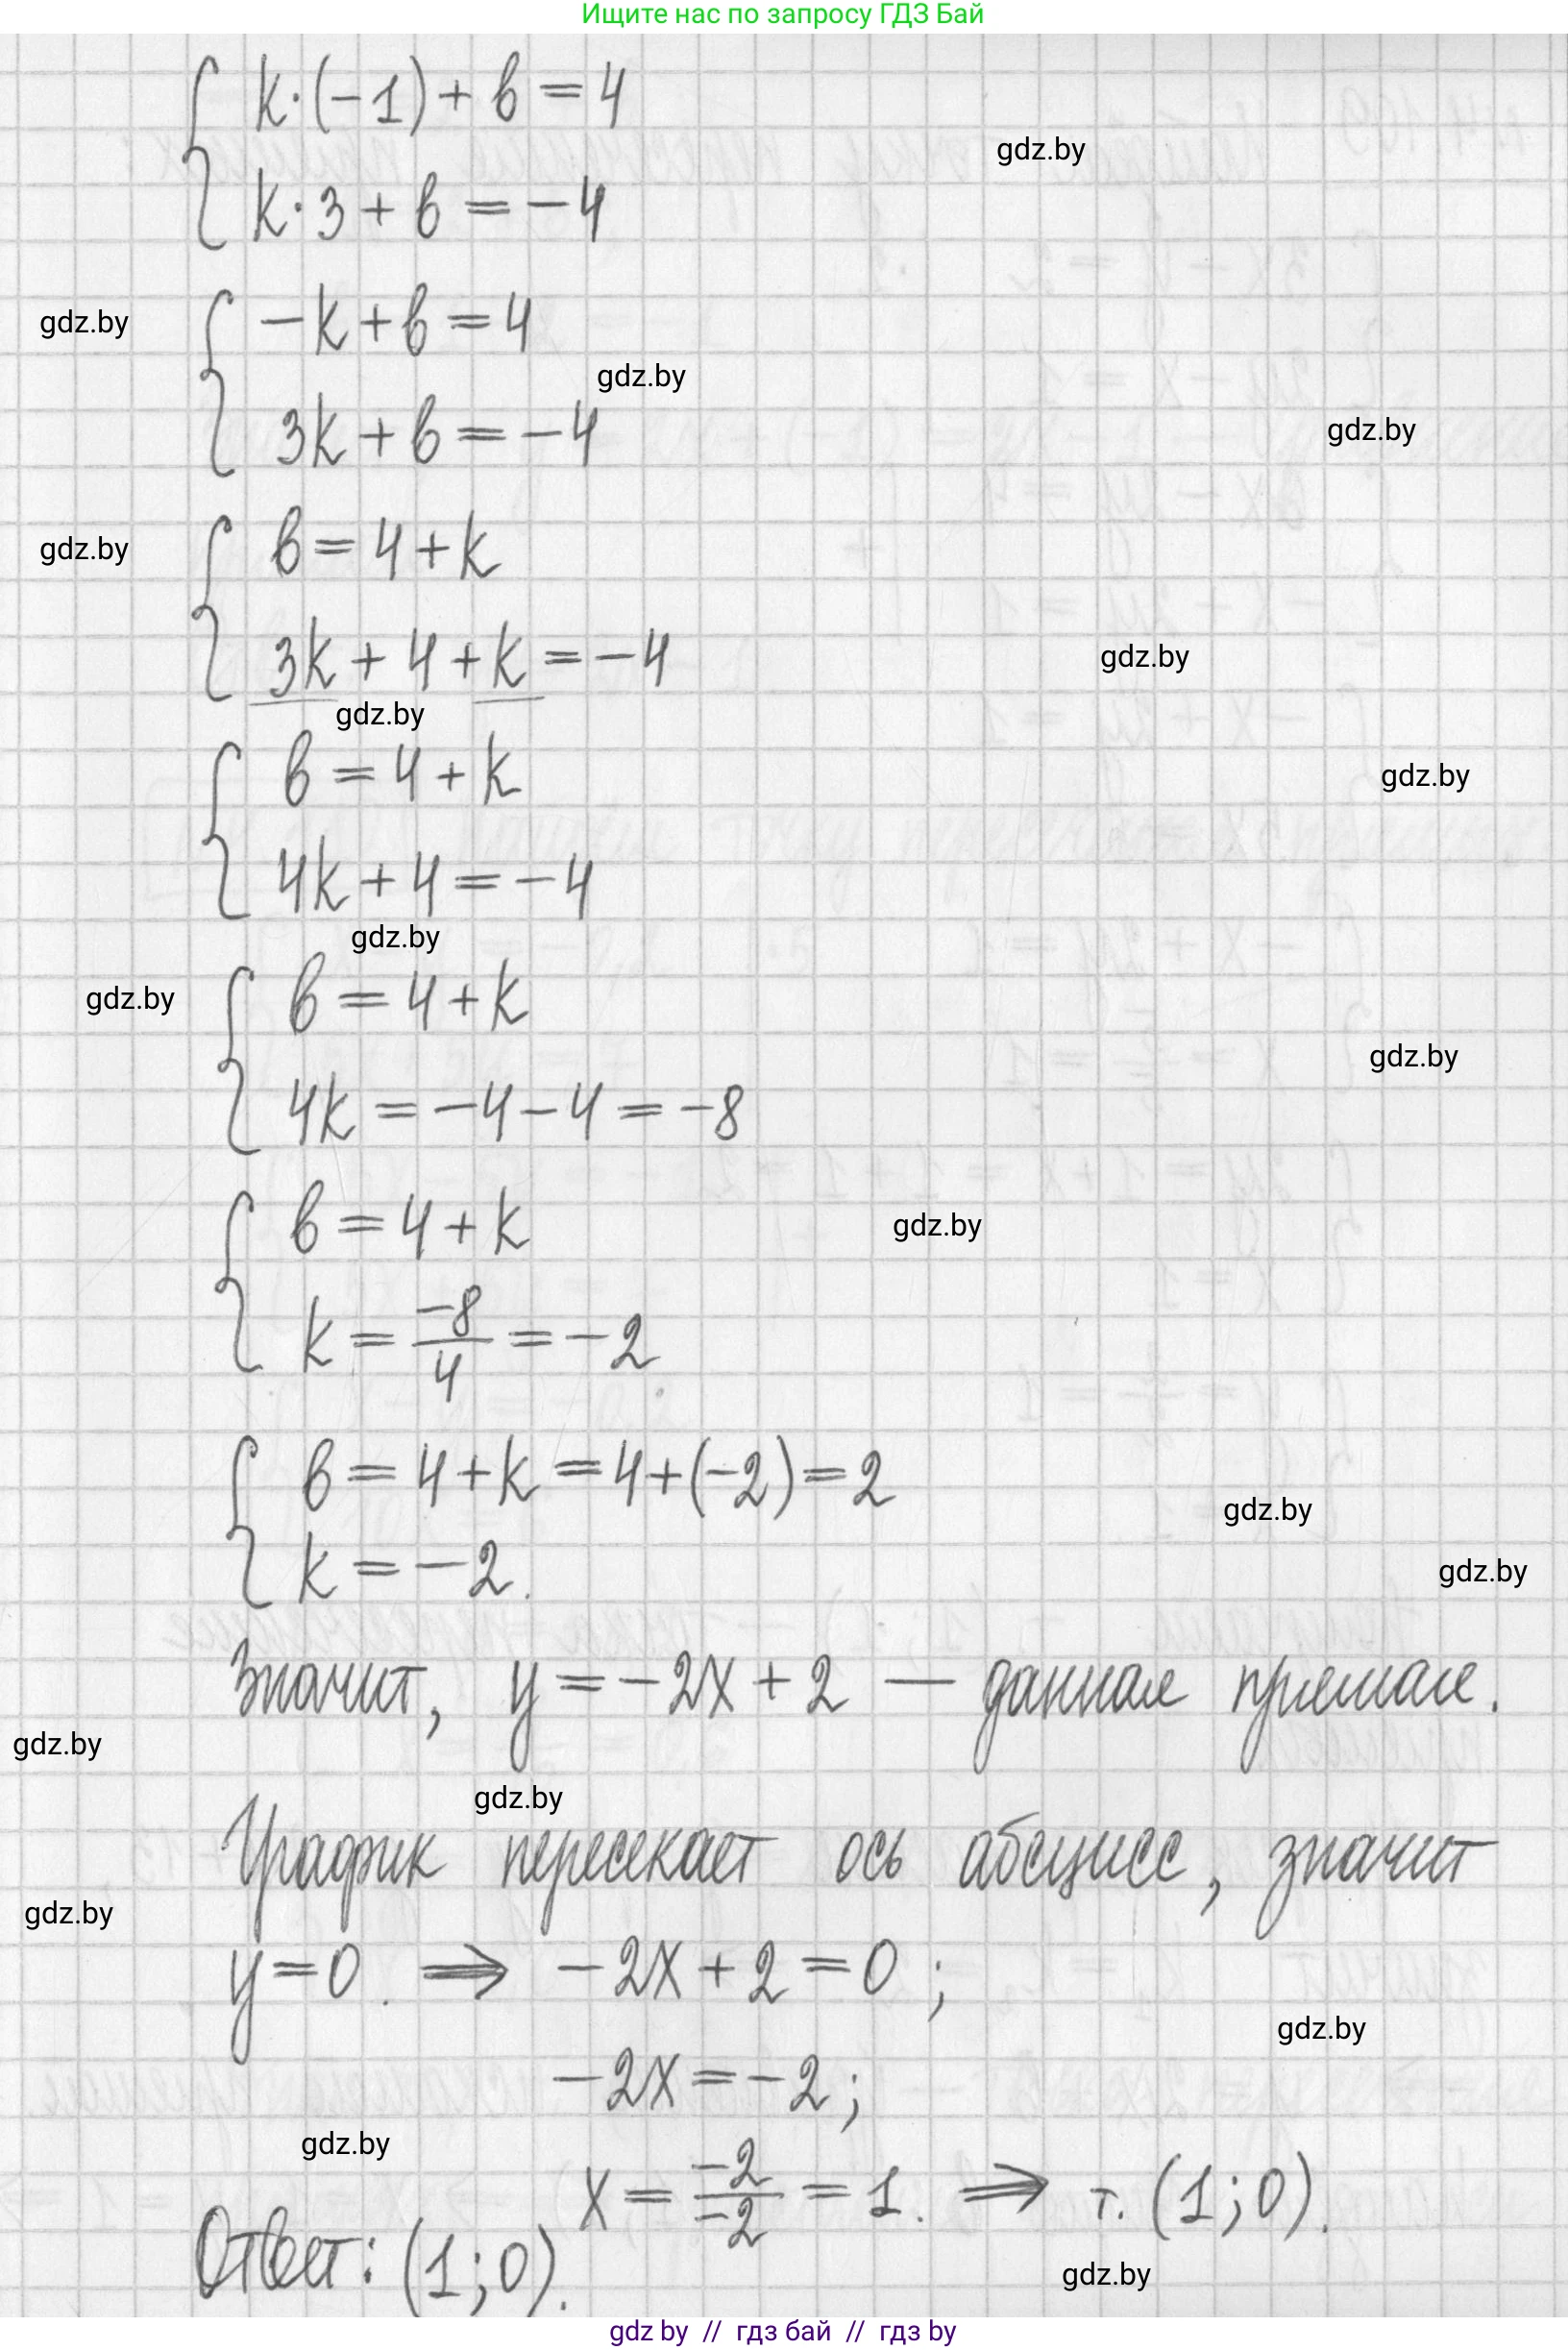 Ищите нас по запросу ГДЗ Бай
k·(-1)+в=4
gdz.by
k·3+в=-4
gdz.by
-k+в=4
gdz.by
3k+в=-4
gdz.by
gdz.by
в=4+k
3k+4+k=-4
gdz.by
gdz.by
в=4+k
gdz.by
4k+4=-4
gdz.by
gdz.by
в=4+k
gdz.by
4k=-4-4=-8
в=4+k
gdz.by
k=\frac{-8}{4}=-2
в=4+k=4+(-2)=2
gdz.by
k=-2.
gdz.by
Значит, y=-2x+2 — данная прямая.
gdz.by
gdz.by
График пересекает ось абсцисс, значит
gdz.by
y=0. ⇒ -2x+2=0;
gdz.by
-2x=-2;
gdz.by
x=\frac{-2}{-2}=1. ⇒ т. (1;0).
Ответ: (1;0).
gdz.by
gdz by // гдз бай // гдз by